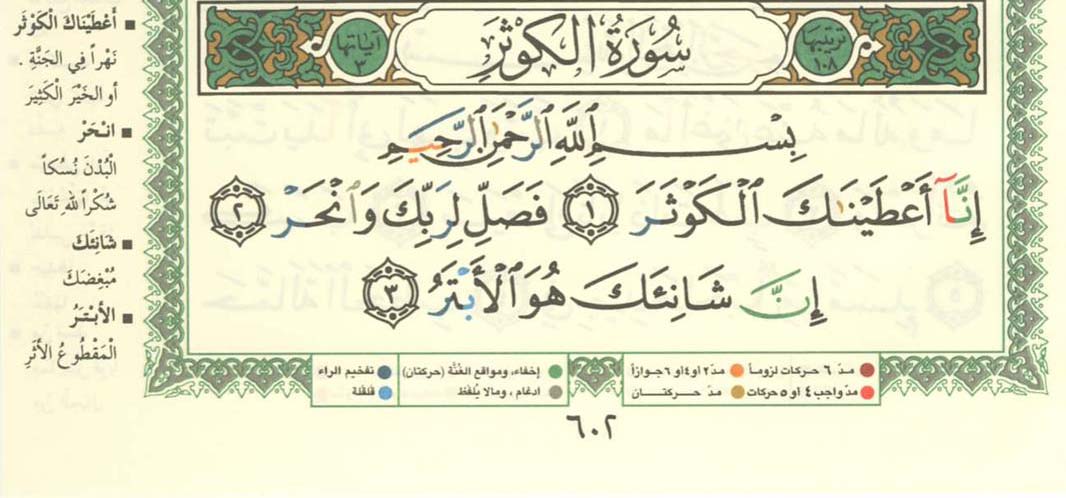 ترتيبها ١٠٨
سُورَةُ الكَوْثَرِ
آياتها ٣
بِسْمِ ٱللَّهِ ٱلرَّحْمَٰنِ ٱلرَّحِيمِ
إِنَّآ أَعْطَيْنَٰكَ ٱلْكَوْثَرَ ١ فَصَلِّ لِرَبِّكَ وَٱنْحَرْ ٢
إِنَّ شَانِئَكَ هُوَ ٱلْأَبْتَرُ ٣
■ أَعْطَيْنَاكَ الْكَوْثَرَ
نَهْراً فِي الجَنَّةِ .
أو الخَيْرَ الْكَثِيرَ
■ انْحَرْ
الْبُدْنَ نُسُكاً
شُكْراً للهِ تَعَالَى
■ شَانِئَكَ
مُبْغِضَكَ
■ الأَبْتَرُ
الْمَقْطُوعُ الأَثَرِ
مدّ ٦ حركات لزوماً
مدّ ٢ أو ٤ أو ٦ جوازاً
إخفاء، ومواقع الغُنَّة (حركتان)
تفخيم الراء
مدّ واجب ٤ أو ٥ حركات
مدّ حركتان
ادغام ، ومالا يُلفَظ
قلقلة
٦٠٢